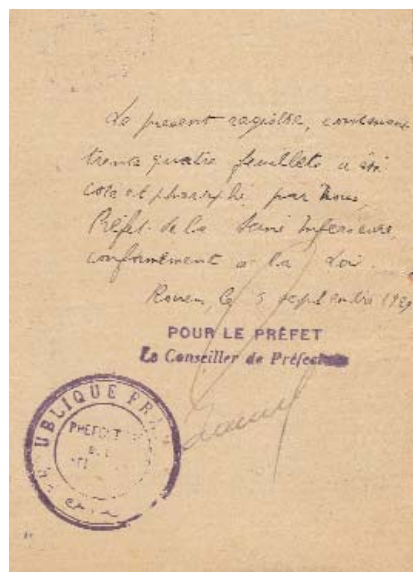 Le present registre, contenant
trente quatre feuillets a été
coté et pharaphé par Nous,
Préfet de la Seine Inférieure
conformément a la Loi.
Rouen, le 5 septembre
POUR LE PRÉFET
Le Conseiller de Préfecture
UBLIQUE FRA
PREFECT